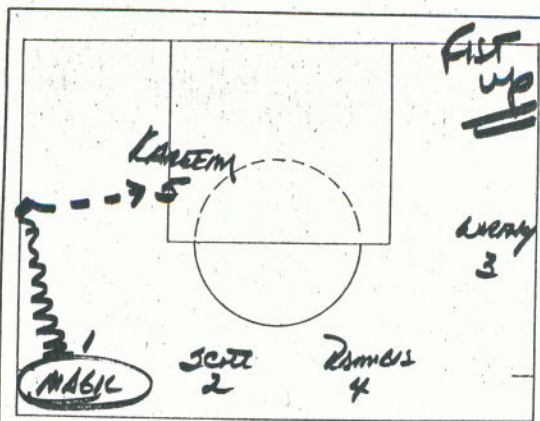 FIST
UP
KAREEM
5
WORTHY
3
1
MAGIC
SCOTT
2
RAMBIS
4